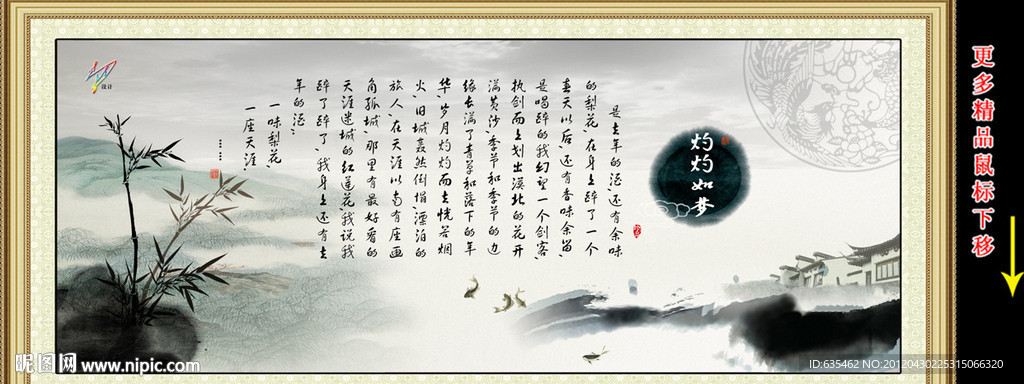 灼灼如梦
是去年的酒、还有余味
的梨花、在身上醉了一个
春天以后、还有香味余留、
是喝醉的我幻望一个剑客、
执剑而上划出漠北的花开
满黄沙、季节和季节的边
缘长满了青草和落下的年
华、岁月灼灼而去恍若烟
火、旧城轰然倒塌、漂泊的
旅人、在天涯以南有座画
角孤城、那里有最好看的
天涯迷城的红莲花、我说我
醉了醉了、我身上还有去
年的酒、
一味梨花
一座天涯、
……
设计
更多精品鼠标下移
昵图网 www.nipic.com
ID:635462 NO:20120430225315066320